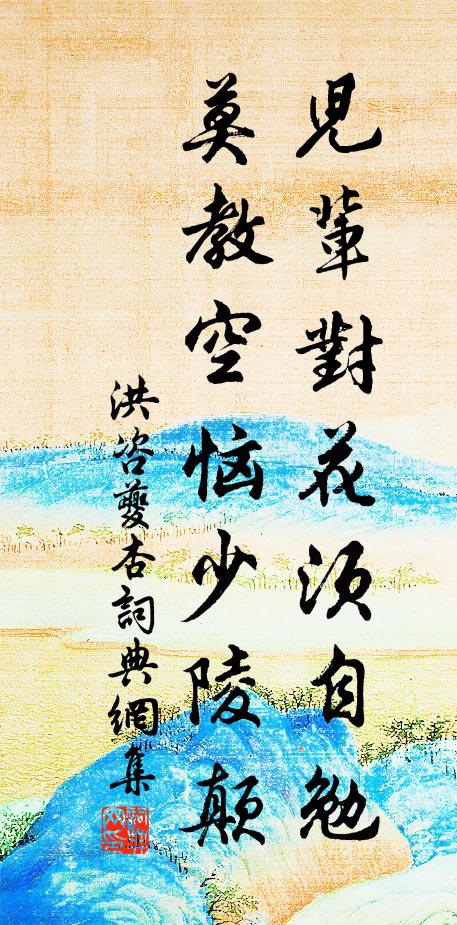 兒輩對花須自勉
莫教空惱少陵顛
洪咨夔杏詞典網集